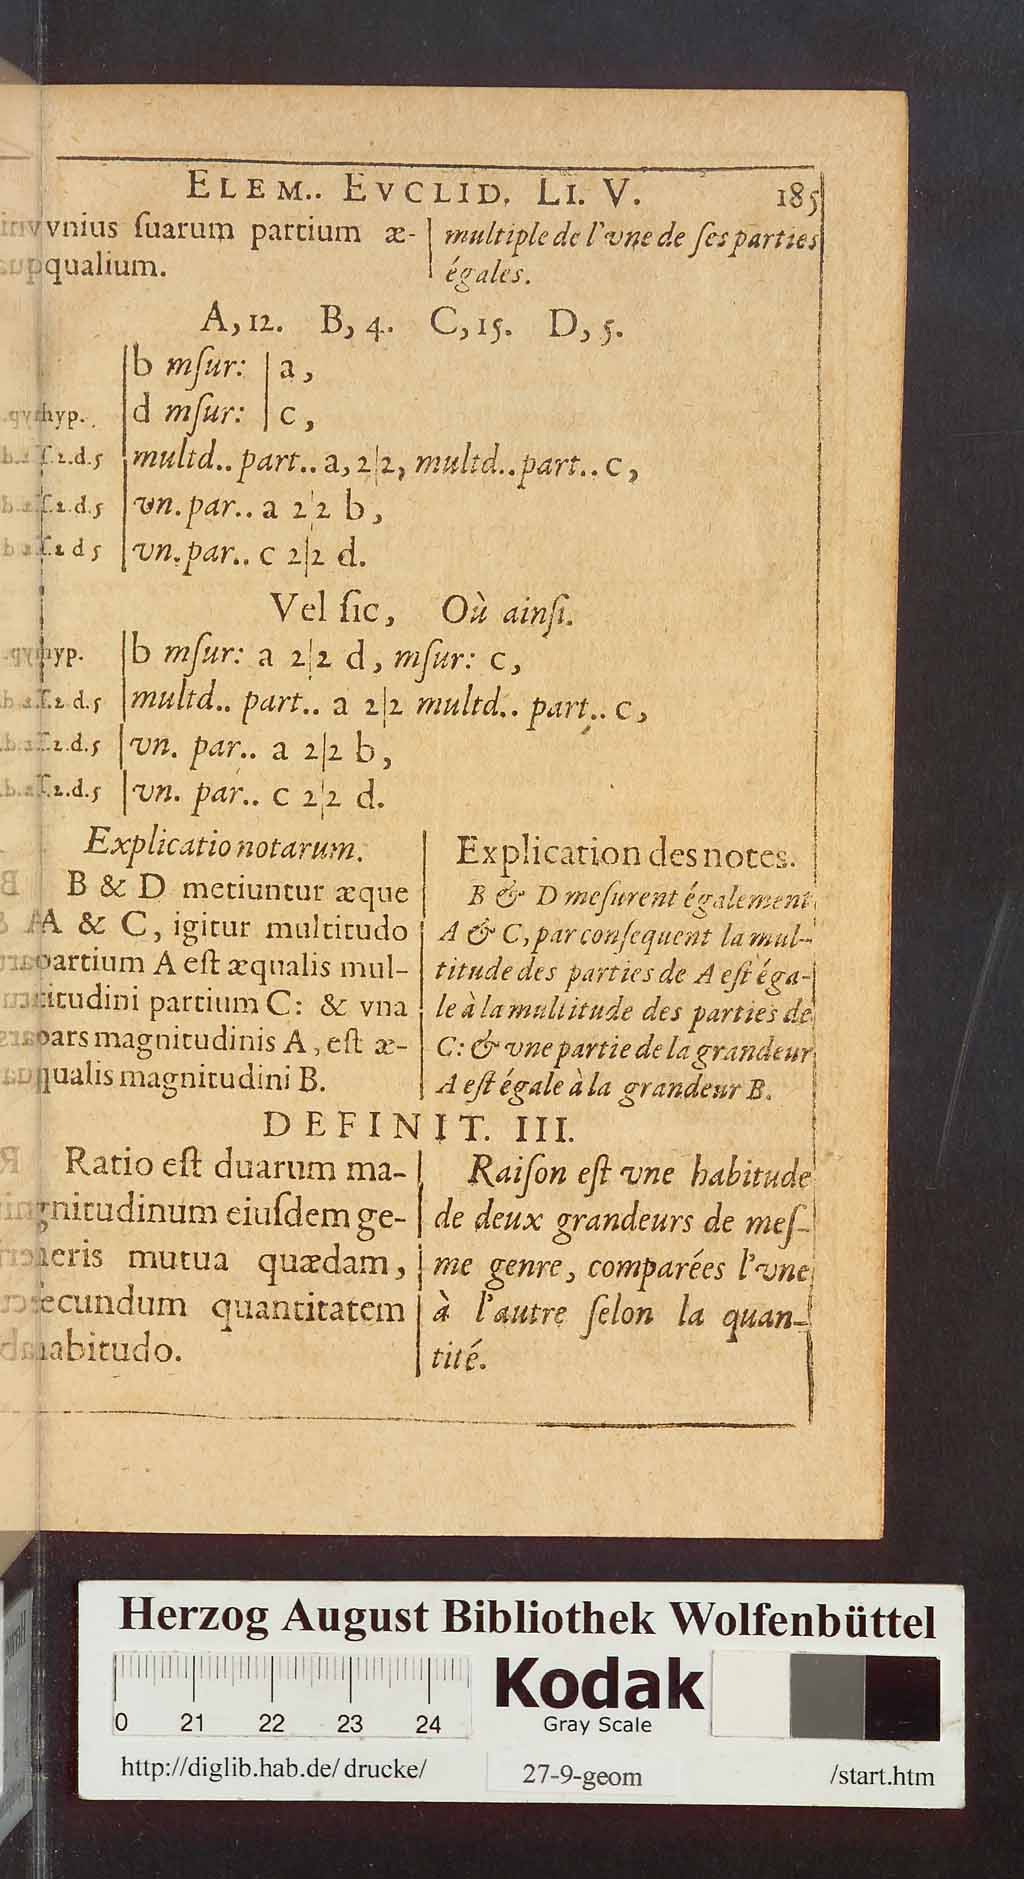 ELEM.. EVCLID. LI. V. 185
vnius ſuarum partium æ-
qualium.
multiple de l'vne de ſes parties
égales.
A, 12. B, 4. C, 15. D, 5.
b mſur: | a,
hyp. | d mſur: | c,
f.2.d.5 | multd.. part.. a, 2|2, multd.. part.. c,
f.2.d.5 | vn. par.. a 2|2 b,
f.2 d 5 | vn. par.. c 2|2 d.
Vel ſic, Où ainſi.
hyp. | b mſur: a 2|2 d, mſur: c,
f.2 d.5 | multd.. part.. a 2|2 multd.. part.. c,
f.2.d.5 | vn. par.. a 2|2 b,
f.2.d.5 | vn. par.. c 2|2 d.
Explicatio notarum.
B & D metiuntur æque
A & C, igitur multitudo
partium A eſt æqualis mul-
titudini partium C: & vna
pars magnitudinis A, eſt æ-
qualis magnitudini B.
Explication des notes.
B & D meſurent également
A & C, par conſequent la mul-
titude des parties de A eſt éga-
le à la multitude des parties de
C: & vne partie de la grandeur
A eſt égale à la grandeur B.
DEFINIT. III.
Ratio eſt duarum ma-
gnitudinum eiuſdem ge-
neris mutua quædam,
ſecundum quantitatem
habitudo.
Raiſon eſt vne habitude
de deux grandeurs de meſ-
me genre, comparées l'vne
à l'autre ſelon la quan-
tité.
Herzog August Bibliothek Wolfenbüttel
0 21 22 23 24
Kodak
Gray Scale
http://diglib.hab.de/drucke/ 27-9-geom /start.htm